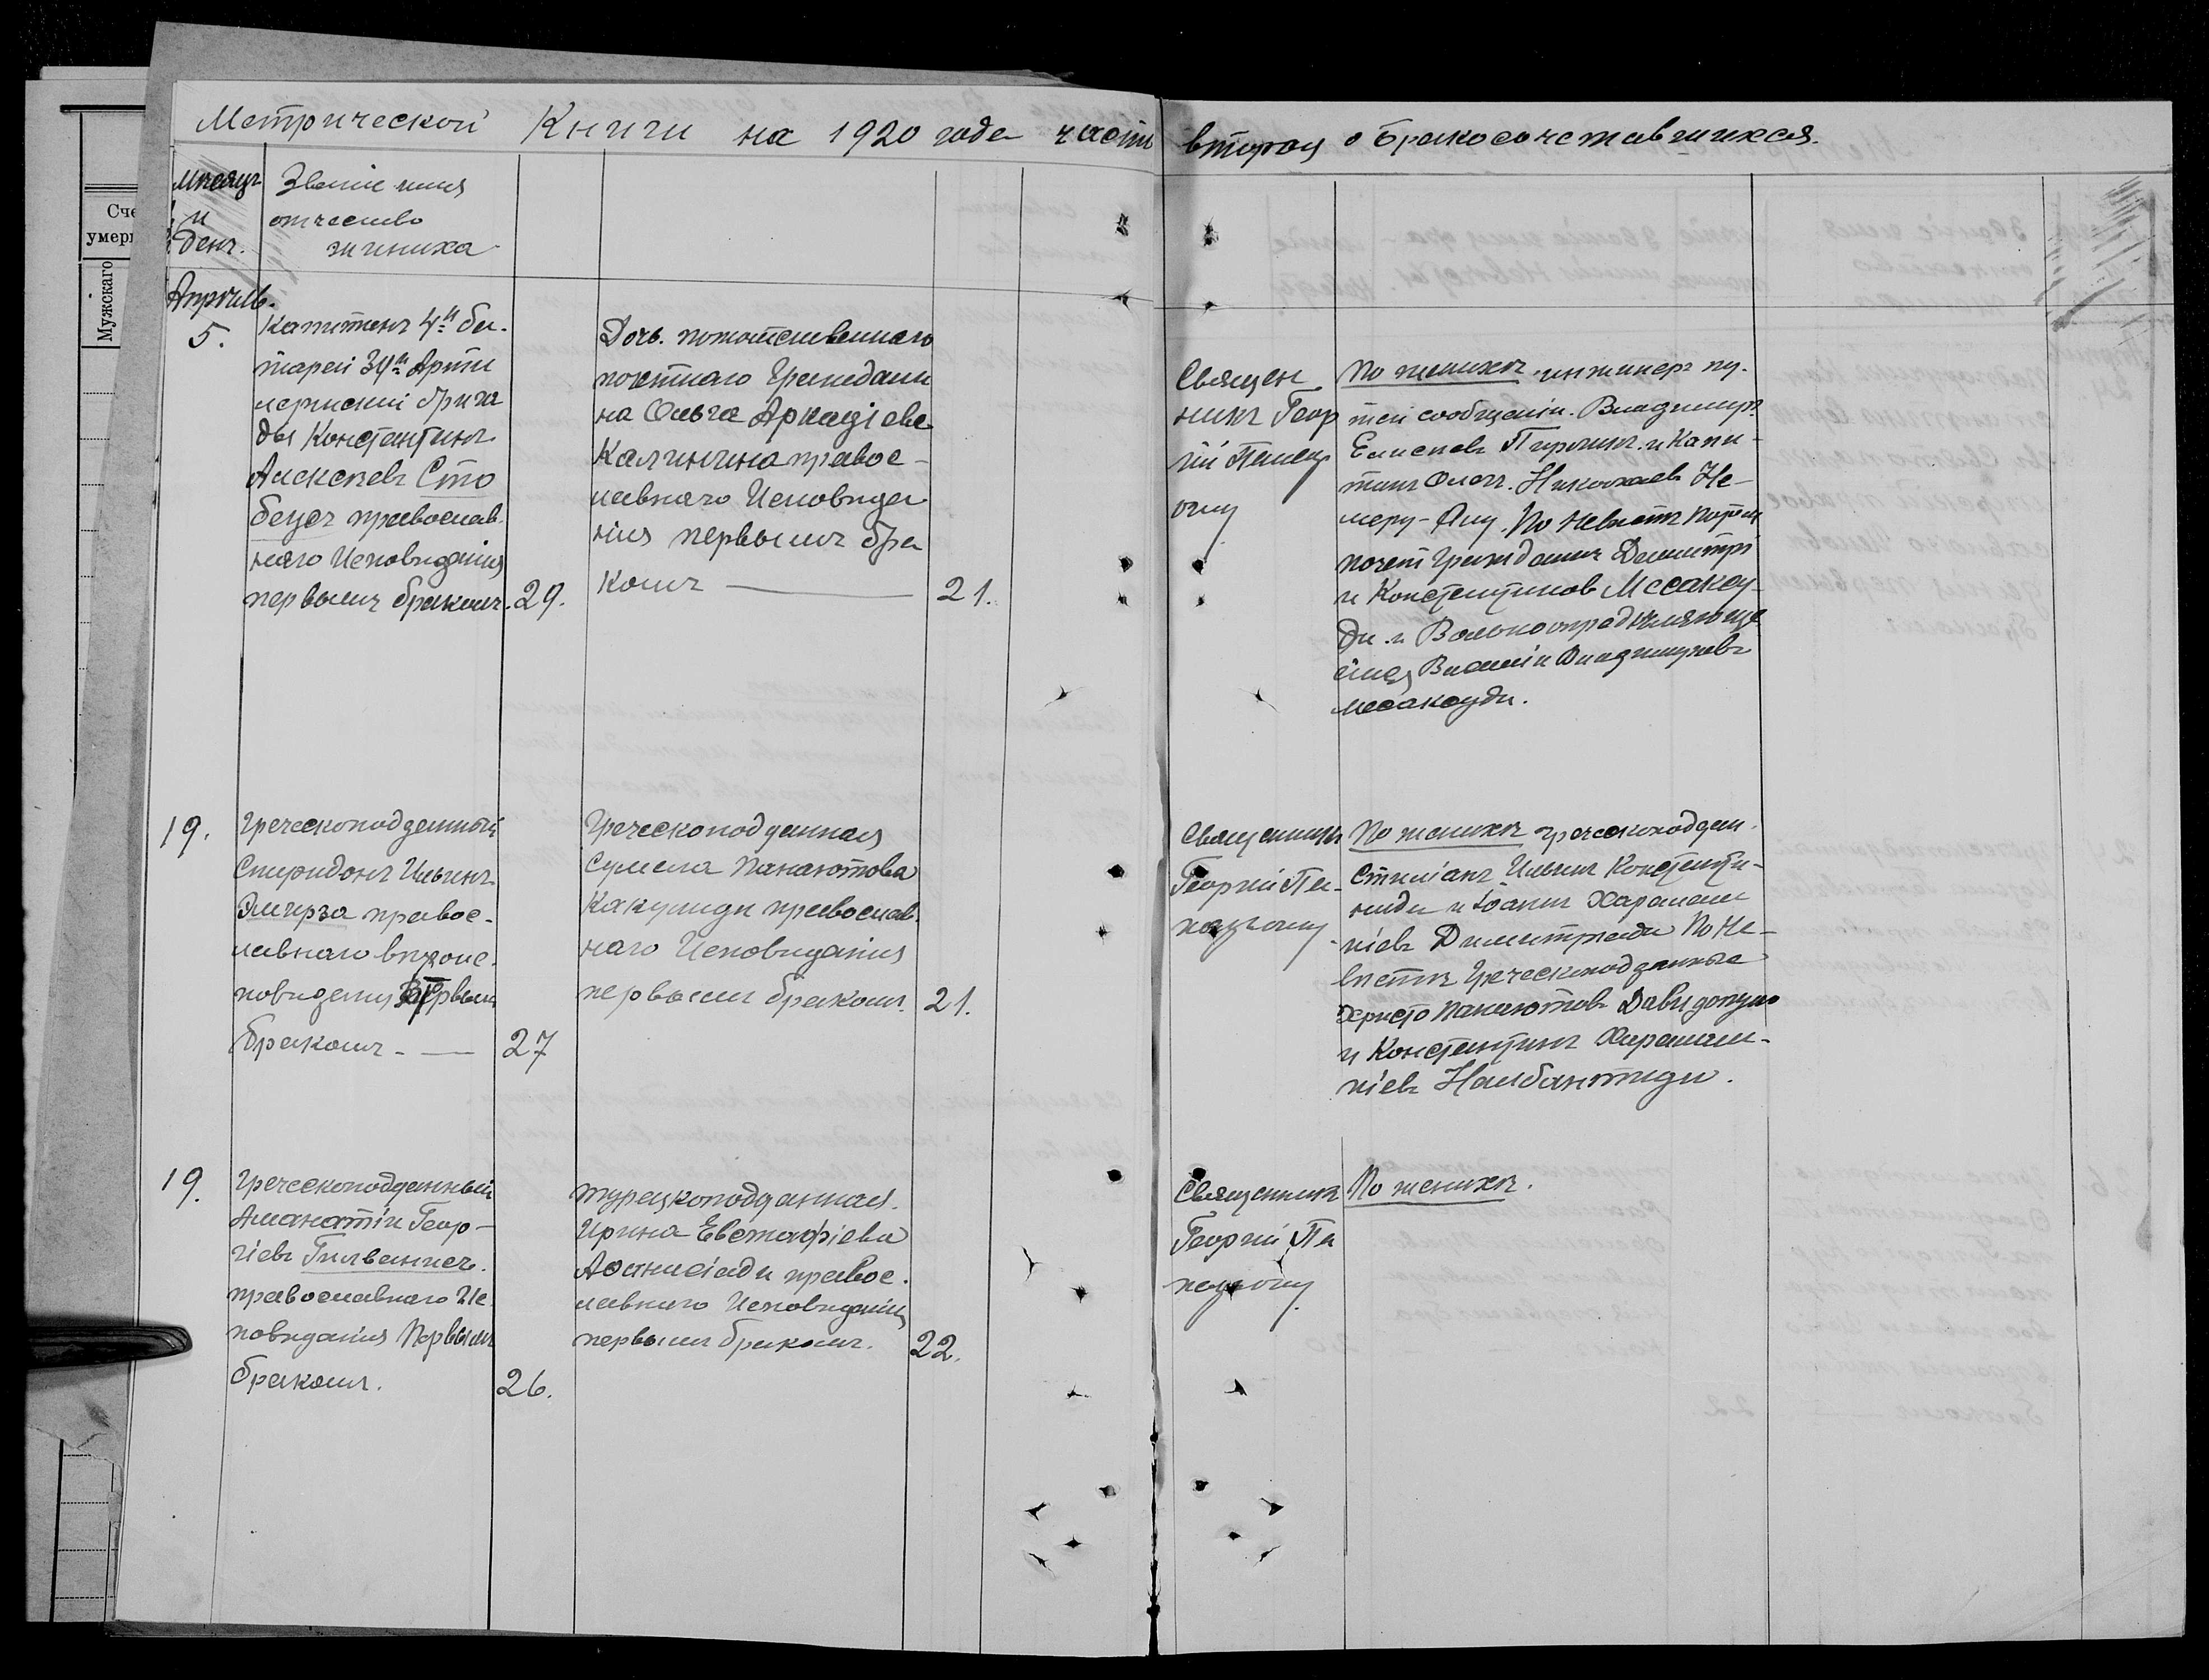 Метрической Книги на 1920 года часть второй о бракосочетавшихся.
Мѣсяцъ
и
день.
Званіе имя
отчество
жениха
Сче
умер
Мужскаго
Апрѣль.
5.
Капитанъ 4й ба-
тареи 34й Арти
лерийской брига
ды Константинъ
Алексѣевъ Сто
бецъ православ
наго Исповѣданія
первымъ бракомъ.
29.
Дочь потомственнаго
почетнаго Гражданина
на Ольга Аркадіева
Калинина правос-
лавнаго Исповѣда
нія первымъ бра
комъ
21.
Священ
никъ Геор
гій
По женихѣ инженеръ пу-
тей сообщенія Владимиръ
Елисѣевъ и Капи-
танъ Олегъ Николаевъ Не-
По Невѣстѣ Потом
почет Гражданинъ Димитрі
и Константинов Месаксу-
ди и Вольноопредѣляюще
йся Владимировъ
Месаксуди.
19.
Греческоподданный
Спиридонъ Ильинъ
правос-
лавнаго вѣроис-
повѣданія первымъ
бракомъ
27
Греческоподданная
Сумела Панаютова
Какулиди православ
наго Исповѣданія
первымъ бракомъ.
21.
Священникъ
Георгій Па-
По женихѣ греческоподдан.
Стиліанъ Ильинъ Константи-
ниди и Іоаннъ Харалам
піевъ Димитріади По Не-
вѣстѣ Греческоподданные
Христо Панаютовъ Давидопуло
и Константинъ Харалам-
піевъ Налбантиди.
19.
Греческоподданный
Аманатій Геор-
гіевъ
православнаго Ис
повѣданія Первымъ
бракомъ.
26.
Турецкоподданная
Ирина Евстафіева
Афанасіади правос-
лавнаго Исповѣданія
первымъ бракомъ.
22.
Священникъ
Георгій Па
По женихѣ.